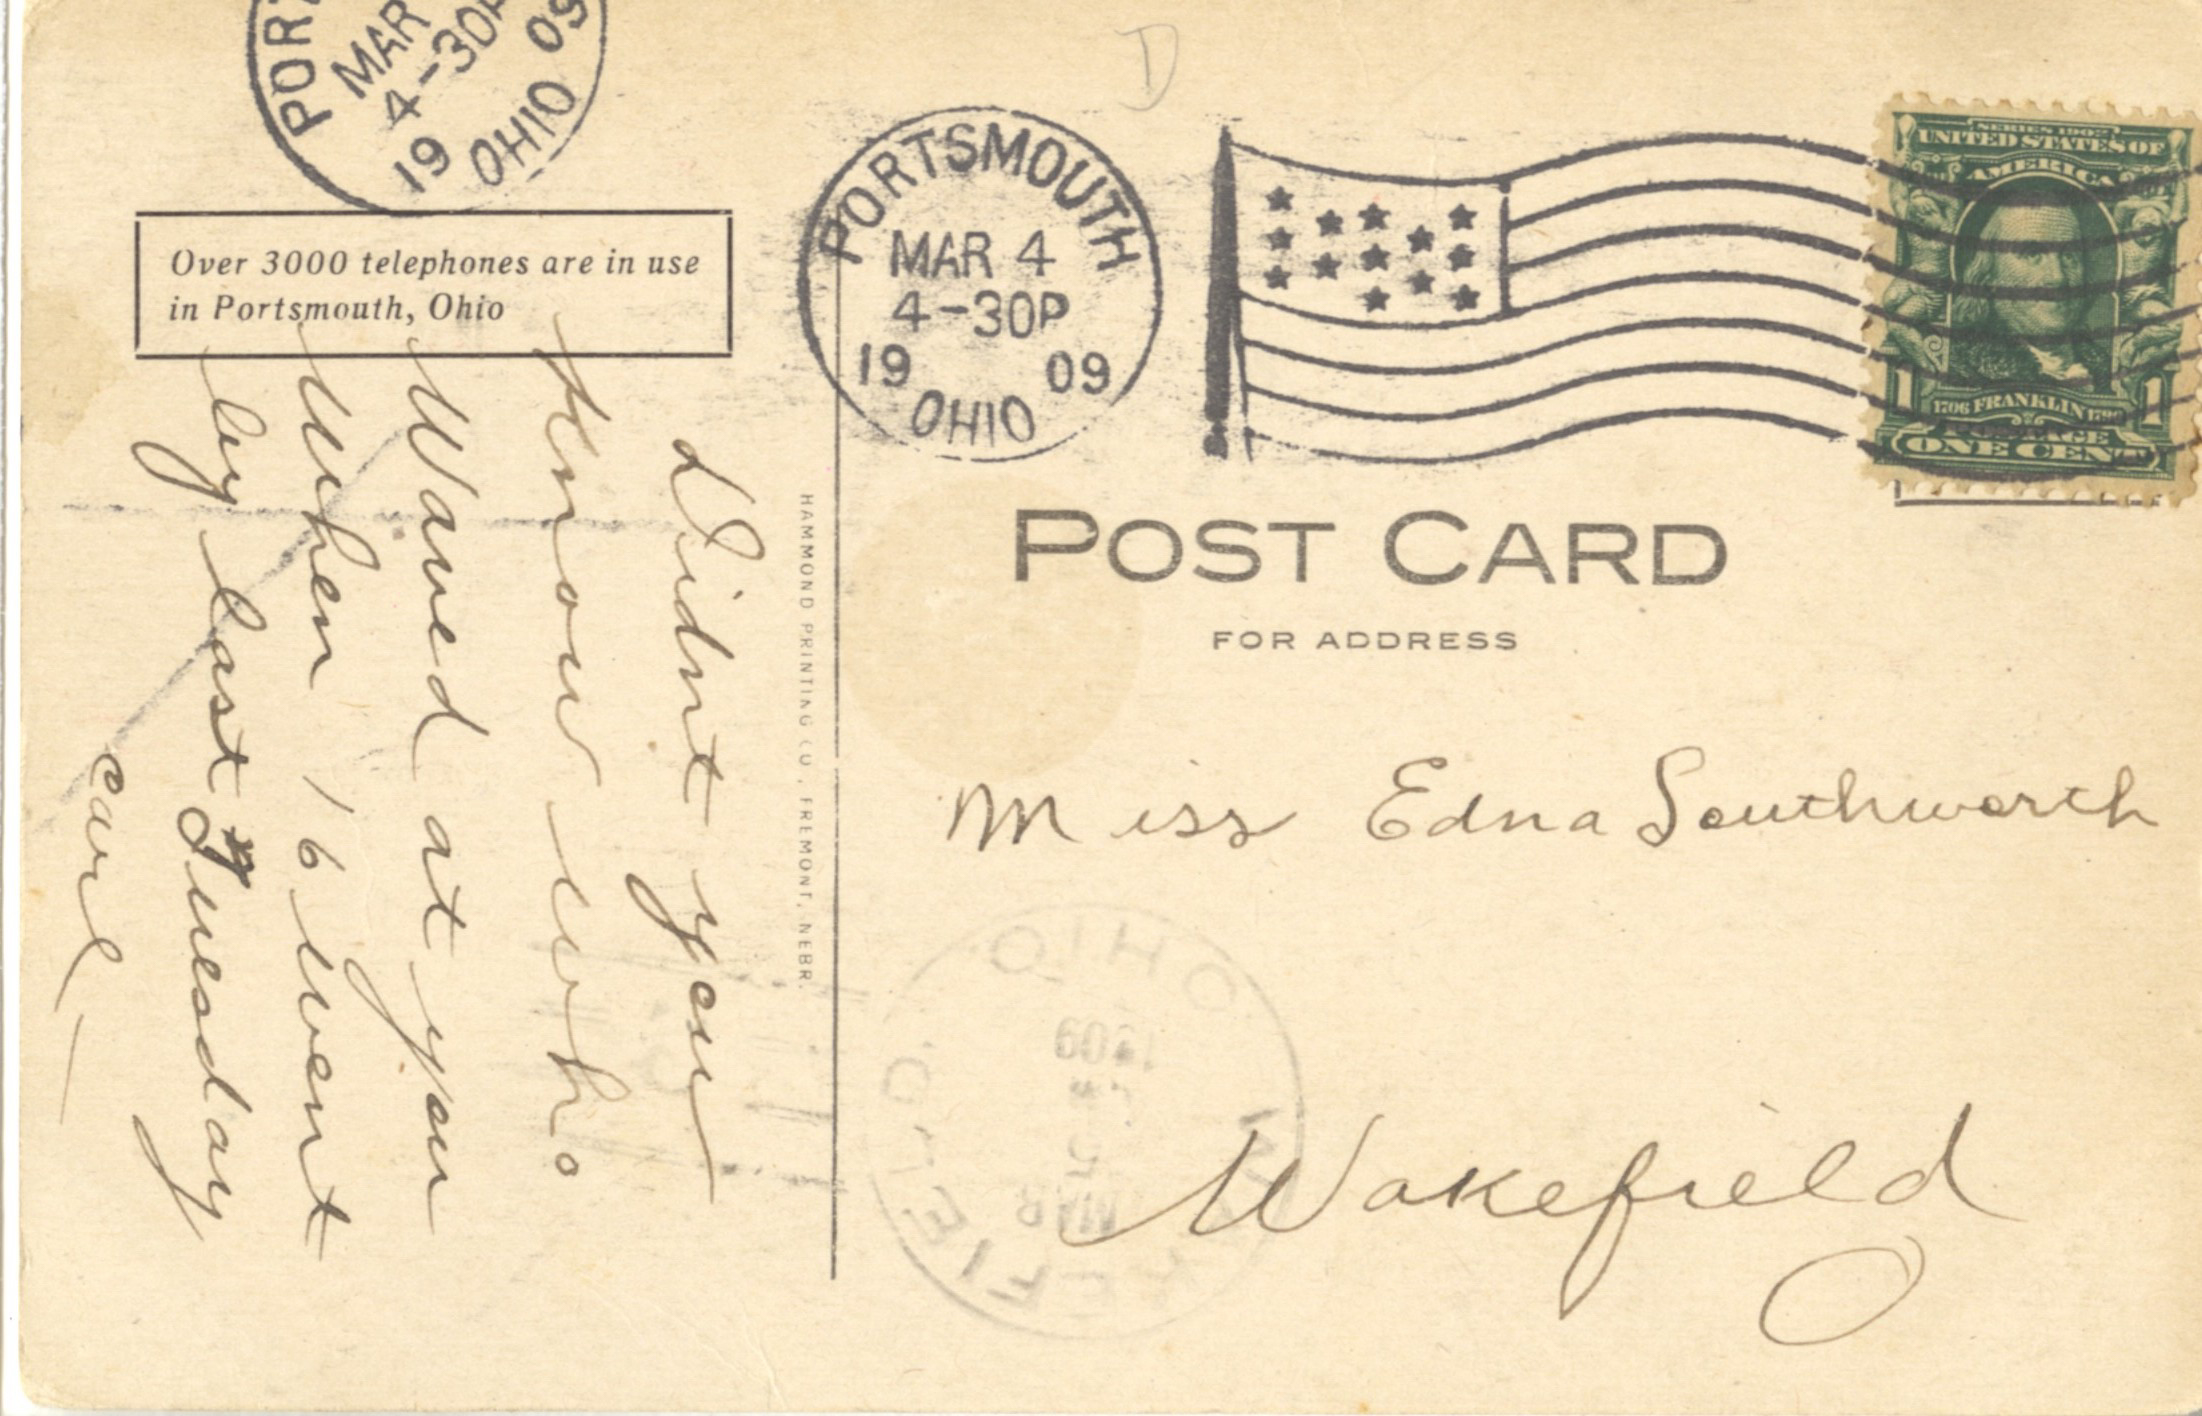 PORT
MAR
4-30P
19 09
OHIO
Over 3000 telephones are in use
in Portsmouth, Ohio
Didnt you
Know who
Waved at you
When 16 went
by last Tuesday
Carl
HAMMOND PRINTING CO., FREMONT, NEBR.
D
PORTSMOUTH
MAR 4
4-30P
19 09
OHIO
SERIES 1902
UNITED STATES OF
AMERICA
1706 FRANKLIN 1790
1 1
POSTAGE
ONE CENT
POST CARD
FOR ADDRESS
Miss Edna Southworth
Wakefield
O
WAKEFIELD
OHIO.
MAR
5
1909